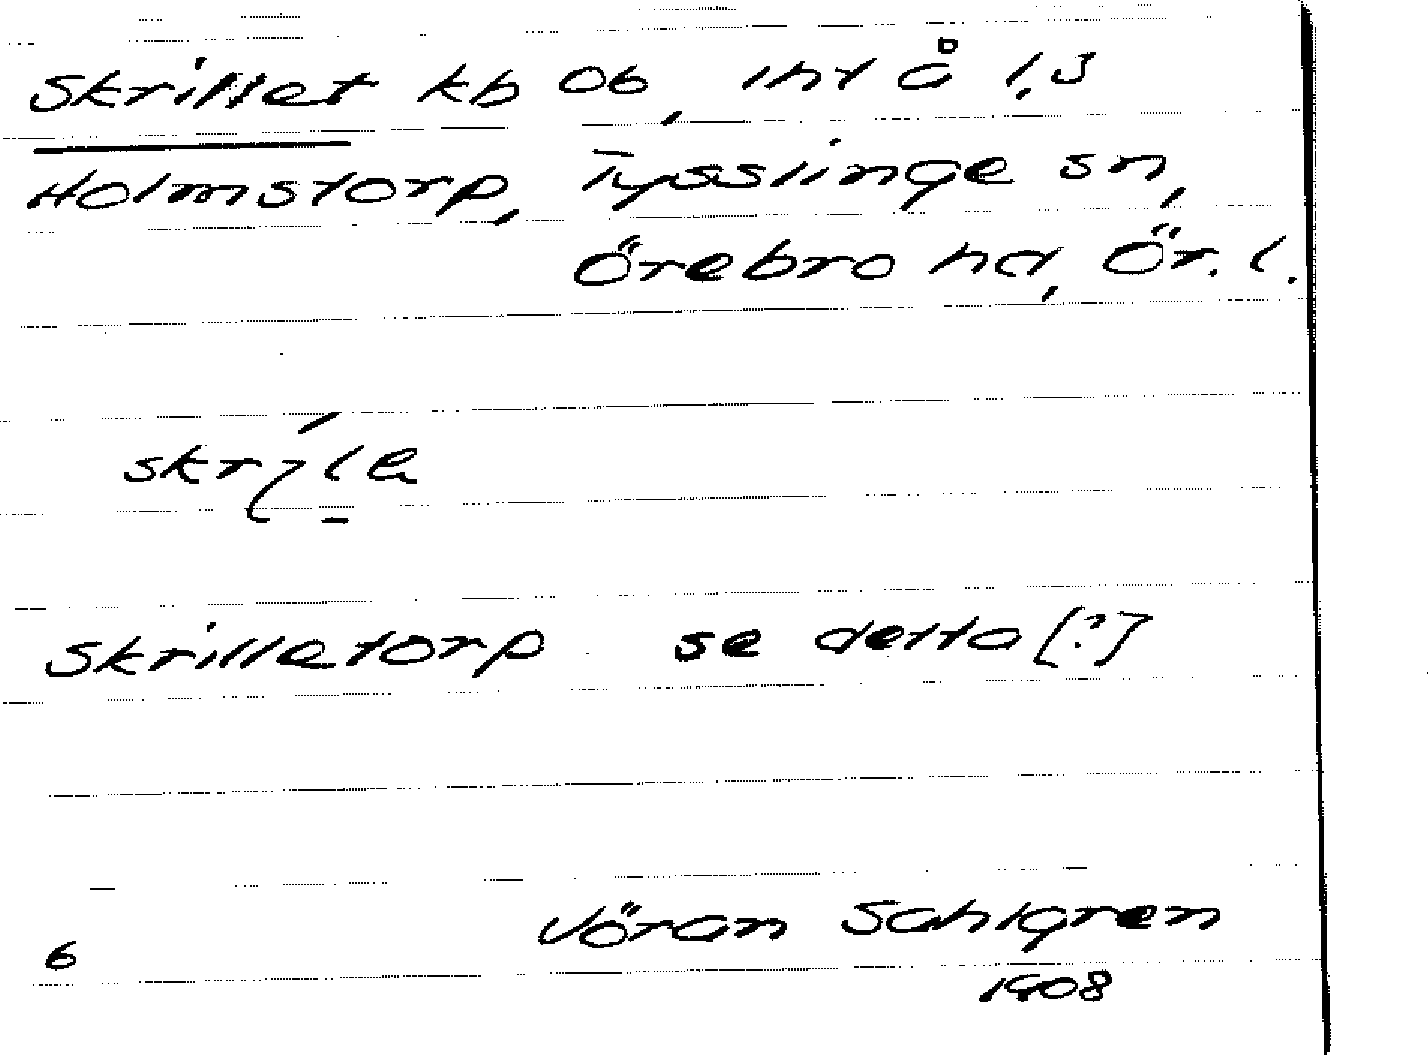 Skrillet kb 06, int å 1,3
Holmstorp, Tysslinge sn,
Örebro hd, Ör. l.
Skrilletorp se detta [?]
Jöran Sahlgren
6
1908